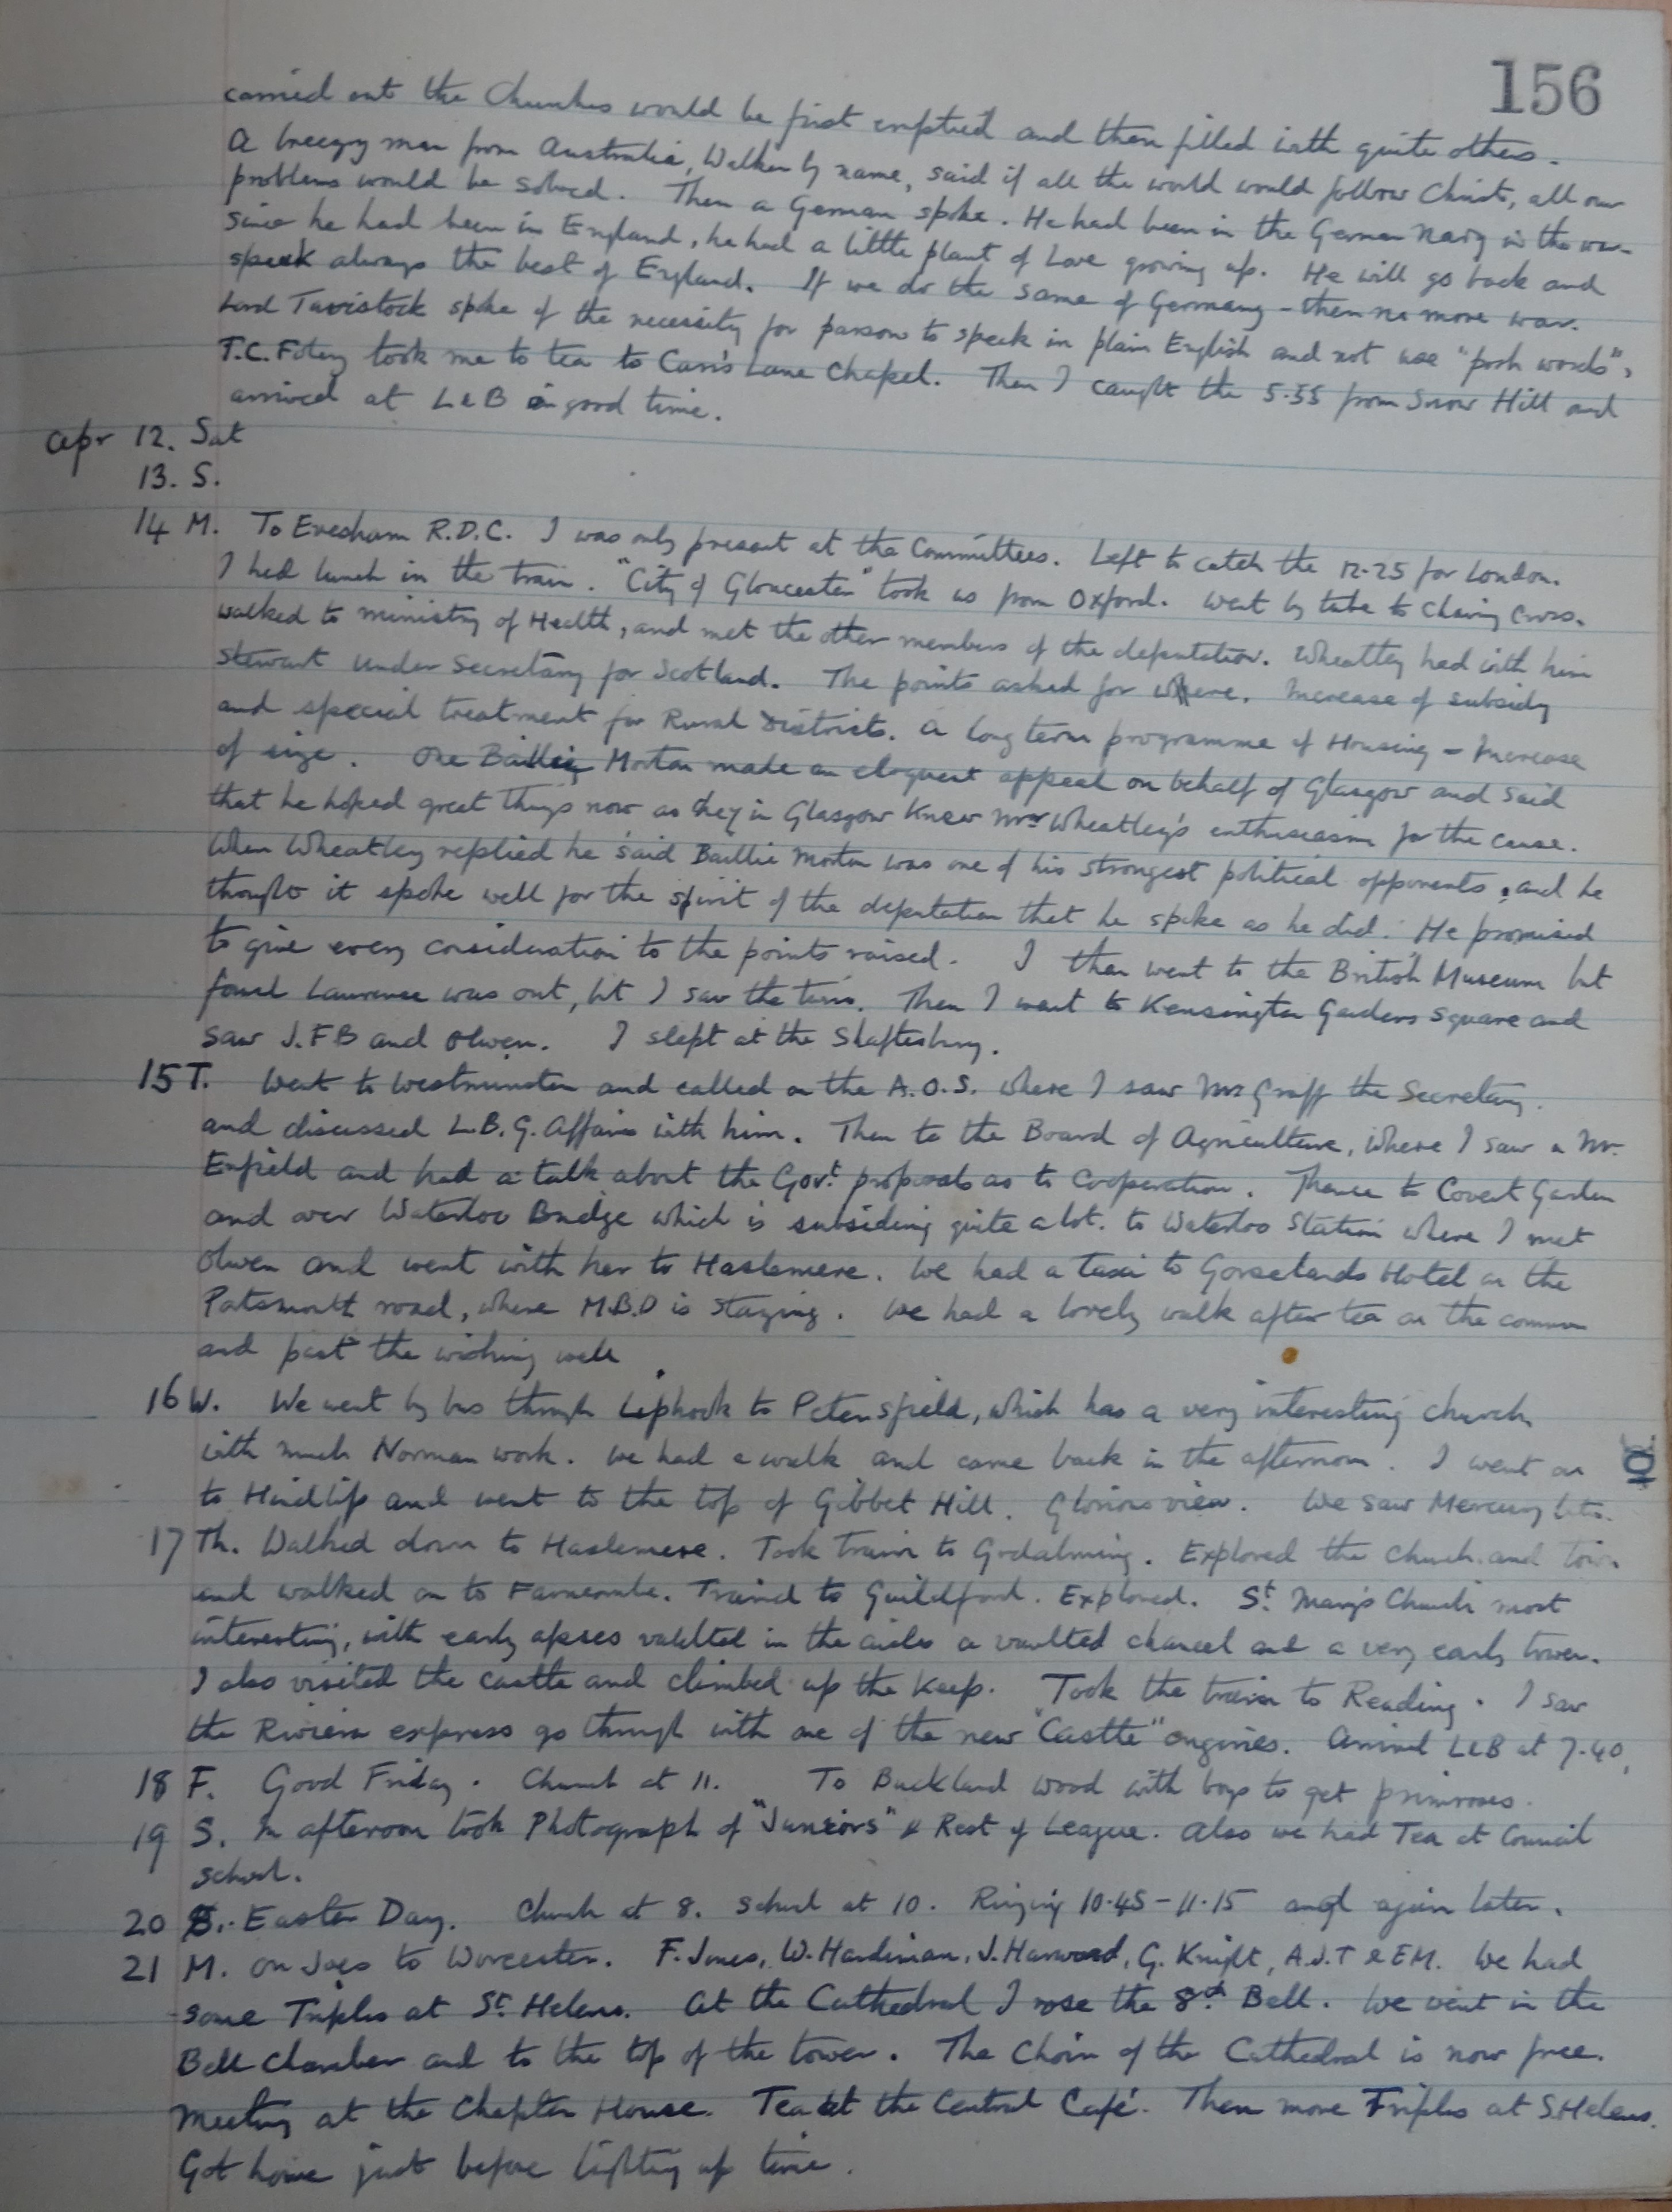 156
carried out the Churches would be first emptied and then filled with quite others.
A breezy man from Australia, Walker by name, said if all the world would follow Christ, all our
problems would be solved. Then a German spoke. He had been in the German Navy in the war.
Since he had been in England, he had a little plant of Love growing up. He will go back and
speak always the best of England. If we do the same of Germany - then no more war.
Lord Tavistock spoke of the necessity for parsons to speak in plain English and not use "posh words".
T.C. took me to tea to Carrs Lane Chapel. Then I caught the 5.55 from Snow Hill and
arrived at L&B in good time.
Apr 12. Sat
13. S.
14 M. To Evesham R.D.C. I was only present at the Committees. Left to catch the 12.25 for London.
I had lunch in the train. "City of Gloucester" took us from Oxford. Went by tube to Charing Cross.
walked to Ministry of Health, and met the other members of the deputation. Wheatley had with him
Stewart Under Secretary for Scotland. The points asked for where. Increase of subsidy
and special treatment for Rural Districts. A long term programme of Housing - Increase
of size. One Baillie Morton made an eloquent appeal on behalf of Glasgow and said
that he hoped great things now as they in Glasgow knew Mr Wheatley's enthusiasm for the cause.
When Wheatley replied he said Baillie Morton was one of his strongest political opponents, and he
thought it spoke well for the spirit of the deputation that he spoke as he did. He promised
to give every consideration to the points raised. I then went to the British Museum but
found Laurence was out, but I saw the twins. Then I went to Kensington Gardens Square and
saw J.F.B and Olwen. I slept at the Shaftesbury.
15 T. Went to Westminster and called on the A.O.S. where I saw Mr Graff the Secretary.
and discussed L.B.G. Affairs with him. Then to the Board of Agriculture, where I saw a Mr.
Enfield and had a talk about the Govt. proposals as to Cooperation. Thence to Covent Garden
and over Waterloo Bridge which is subsiding quite a lot. to Waterloo Station where I met
Olwen and went with her to Haslemere. We had a taxi to Gorselands Hotel on the
Portsmouth road, where M.B.D is staying. We had a lovely walk after tea on the common
and past the wishing well
16 W. We went by bus through Liphook to Petersfield, which has a very interesting church
with much Norman work. We had a walk and came back in the afternoon. I went on
to Hindlip and went to the top of Gibbet Hill. Glorious view. We saw Mercury later.
17 Th. Walked down to Haslemere. Took train to Godalming. Explored the church and town
and walked on to Farncombe. Trained to Guildford. Explored. St. Mary's Church most
interesting, with early apses vaulted in the aisles a vaulted chancel and a very early tower.
I also visited the castle and climbed up the Keep. Took the train to Reading. I saw
the Riviera express go through with one of the new "Castle" engines. Arrived L&B at 7.40.
18 F. Good Friday. Church at 11. To Buckland wood with boys to get primroses.
19 S. In afternoon took Photograph of "Juniors" & Rest of League. Also we had Tea at Council
School.
20 S. Easter Day. Church at 8. School at 10. Ringing 10.45 - 11.15 and again later.
21 M. On Joes to Worcester. F. Jones, W. Hardiman, J. Harwood, G. Knight, A.J.T & E.M. We had
some Triples at St Helens. At the Cathedral I rose the 8th Bell. We went in the
Bell chamber and to the top of the tower. The Choir of the Cathedral is now free.
Meeting at the Chapter House. Tea at the Central Café. Then more Triples at S.Helens.
Got home just before lighting up time.